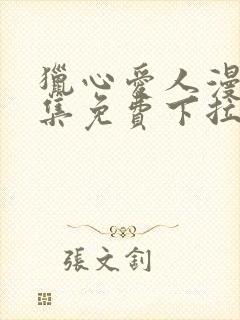 獵心愛人漫
集免費下拉
張文釗